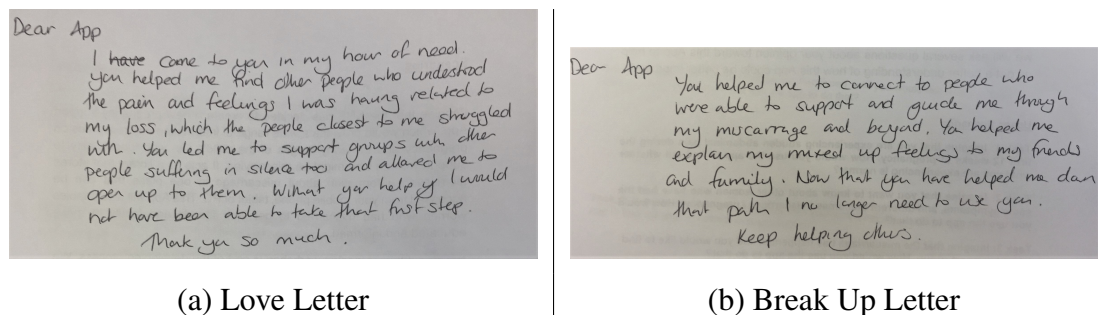 Dear App
I have come to you in my hour of need.
you helped me find other people who understood
the pain and feelings I was having related to
my loss, which the people closest to me struggled
with. You led me to support groups with other
people suffering in silence too and allowed me to
open up to them. Without your help I would
not have been able to take that first step.
Thank you so much.
(a) Love Letter
Dear App
You helped me to connect to people who
were able to support and guide me through
my miscarrage and beyond. You helped me
explain my mixed up feelings to my friends
and family. Now that you have helped me down
that path I no longer need to use you.
Keep helping others.
(b) Break Up Letter